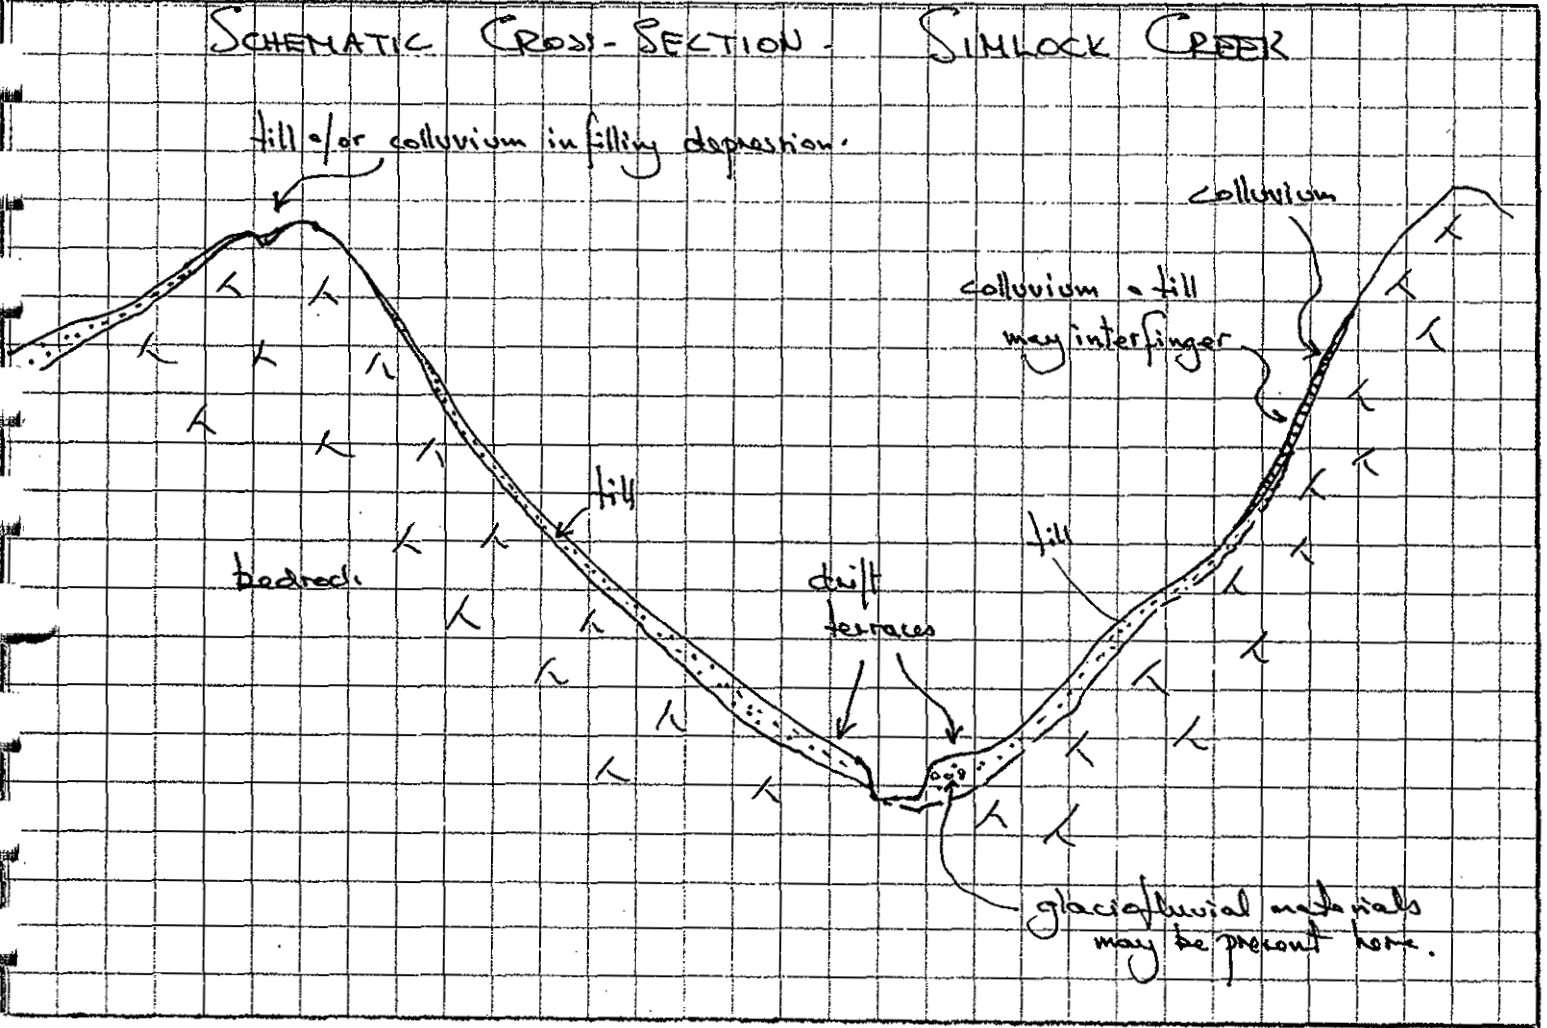 SCHEMATIC CROSS-SECTION - SIMLOCK CREEK
till &/or colluvium infilling depression.
colluvium
colluvium & till
may interfinger
till
till
bedrock
drift
terraces
glaciofluvial materials
may be present here.